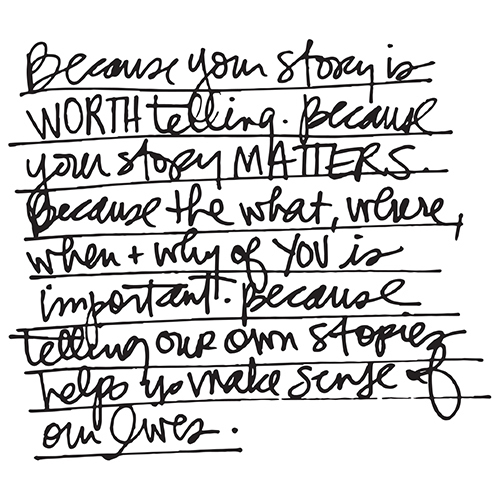 Because your story is
WORTH telling. Because
your story MATTERS.
Because the what, where,
when + why of YOU is
important. Because
telling our own stories
helps us make sense of
our lives.